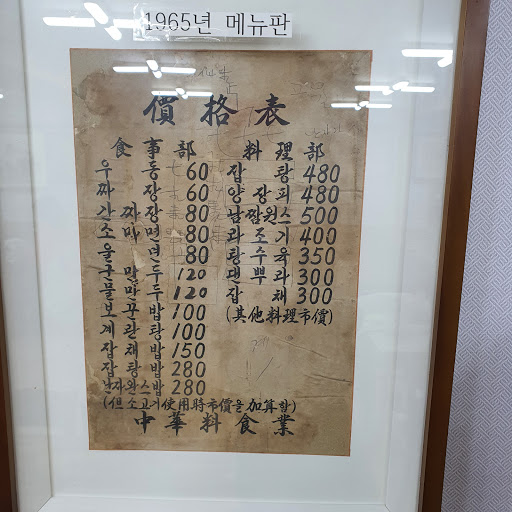 1965년 메뉴판
價格表
食事部
우동 60
짜장 60
간짜장 80
소마면 80
울면 80
군만두 120
물만두 120
보꾼밥 100
계란탕 100
잡채밥 150
잡탕밥 280
난자완스밥 280
(但 소고기使用時市價을加算함)
料理部
잡탕 480
양장피 480
남짬원스 500
과조기 400
탕수육 350
덴뿌라 300
잡채 300
(其他料理市價)
中華料食業